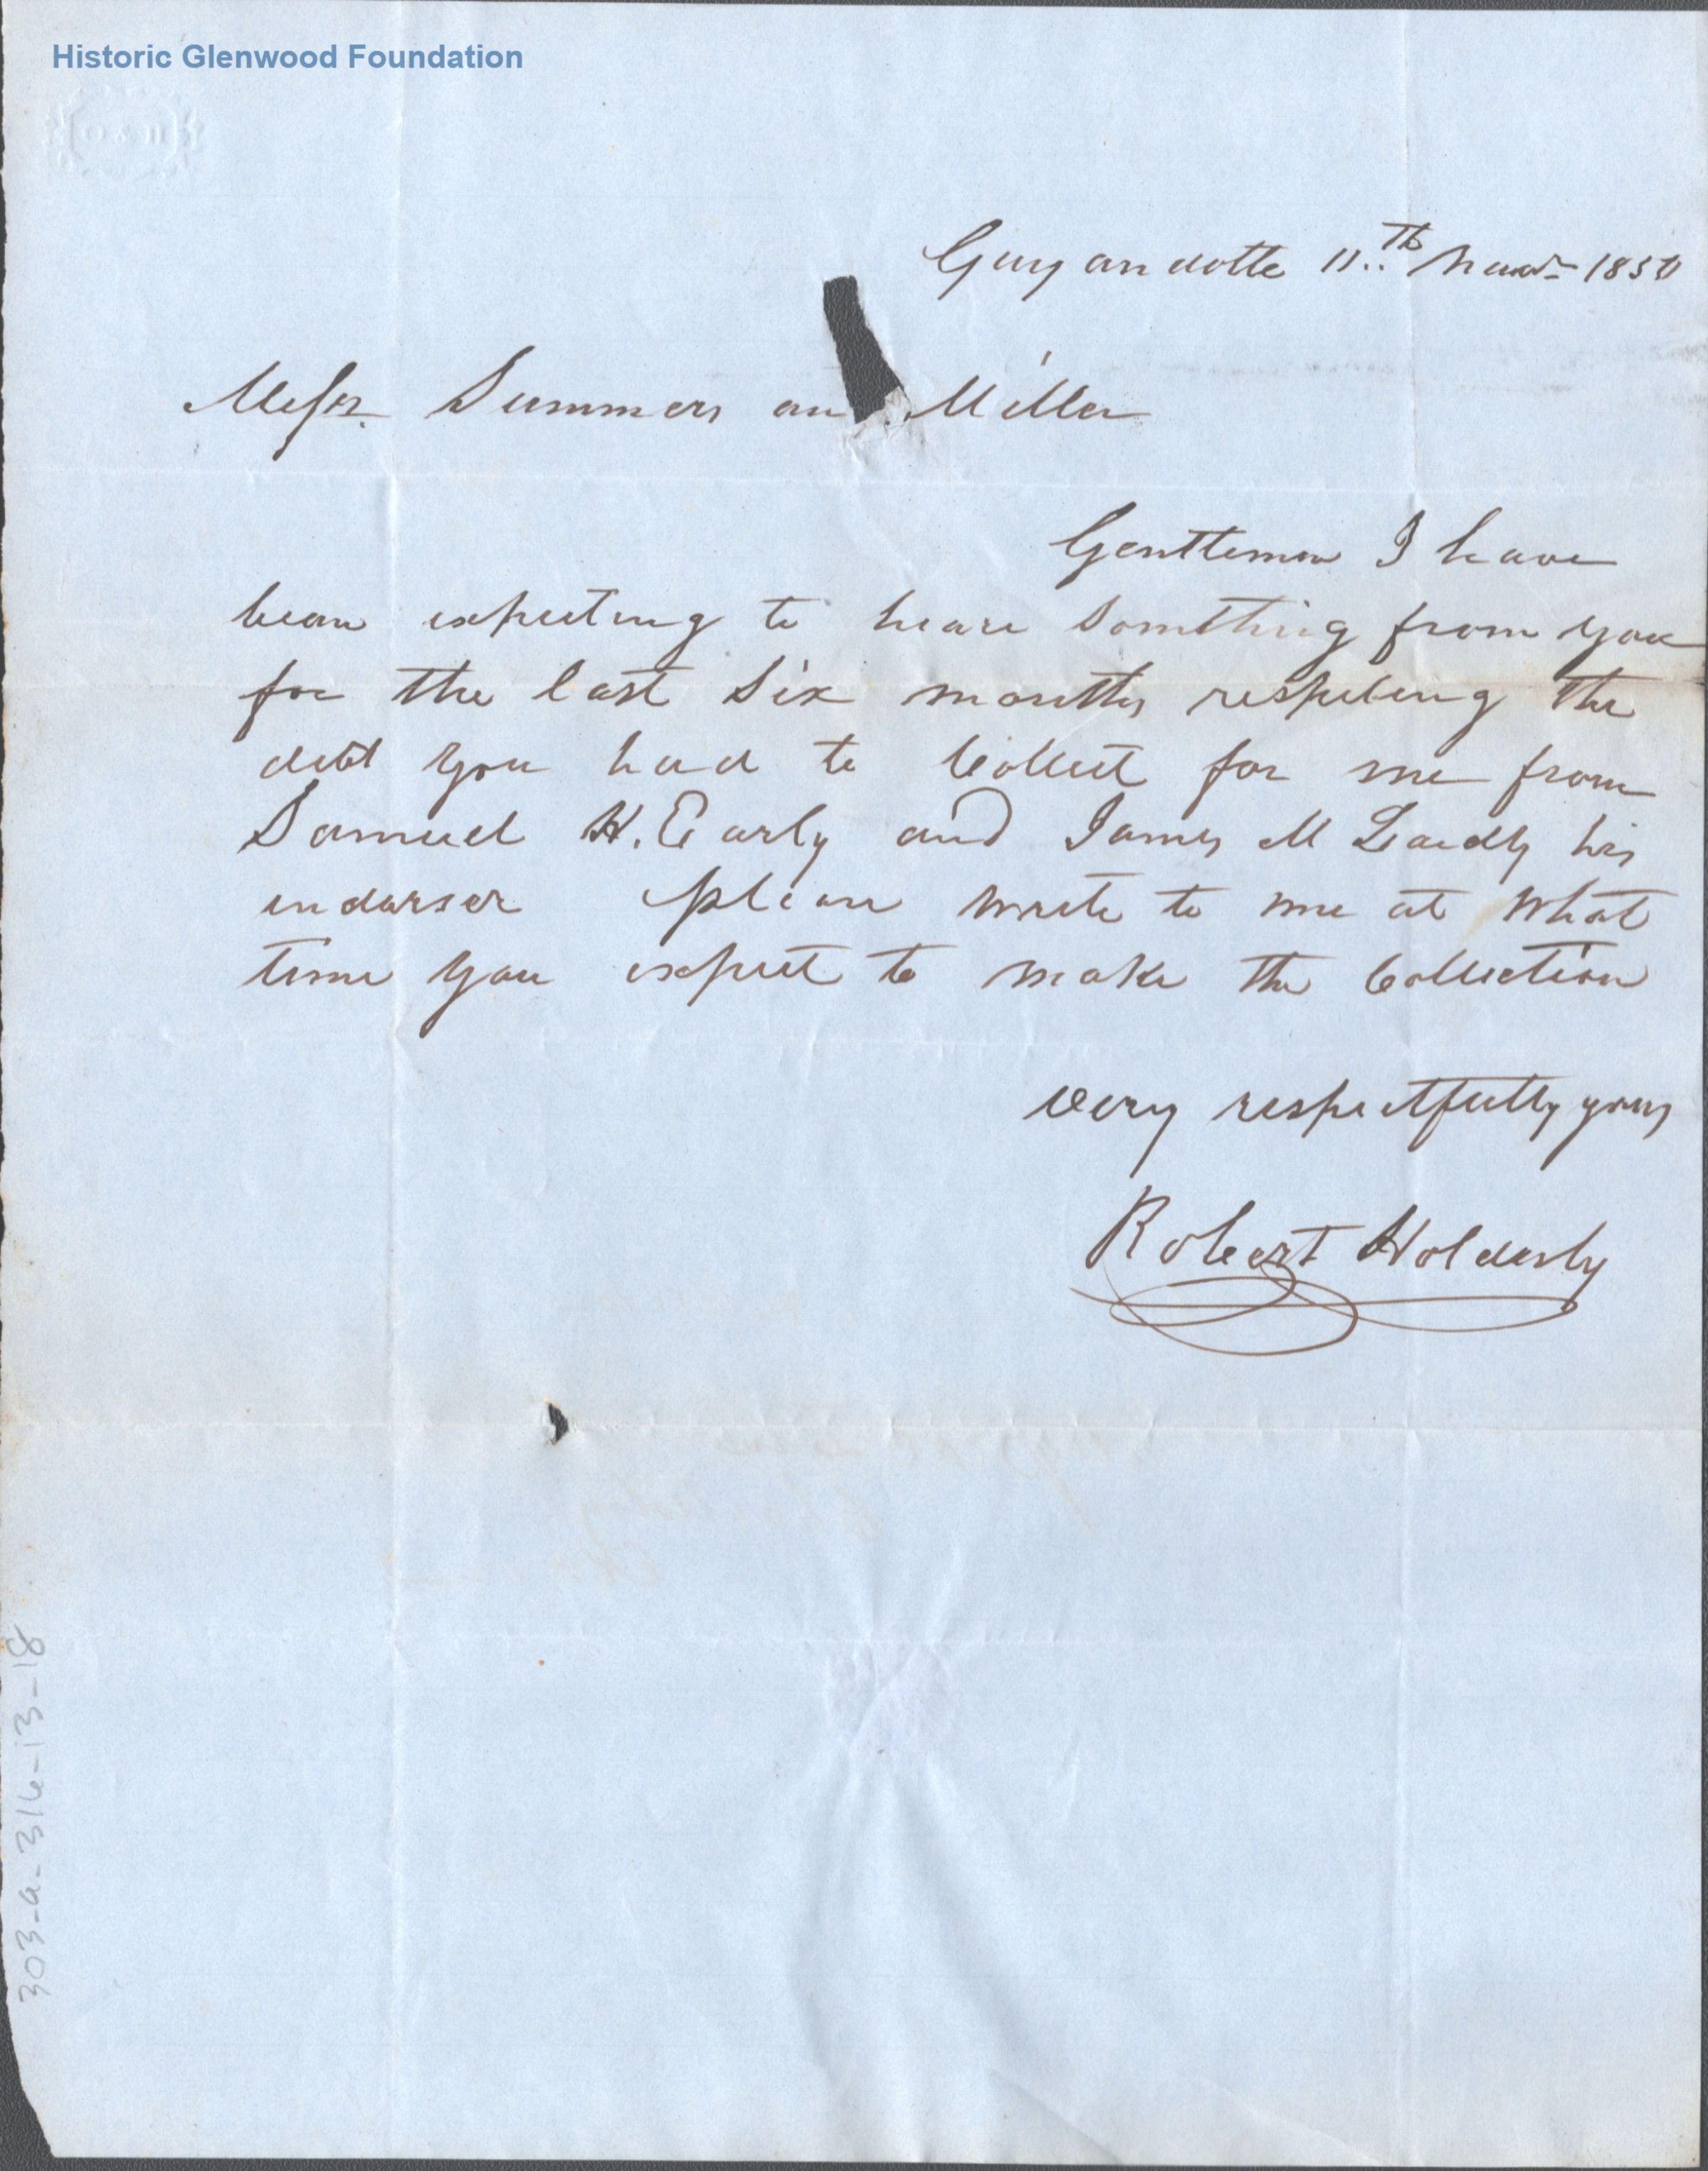 Historic Glenwood Foundation
Guyandotte 11th 1850
Messrs. Summers an Miller
Gentlemen I have
bean expecting to heare Something from you
for the last Six months respecting the
debt you had to Collect for me from
Samuel H. Early and James M Laidly his
endorser please write to me at what
time you expect to make the Collection
very respectfully yours
Robert Holderby
303-a-316-13-18